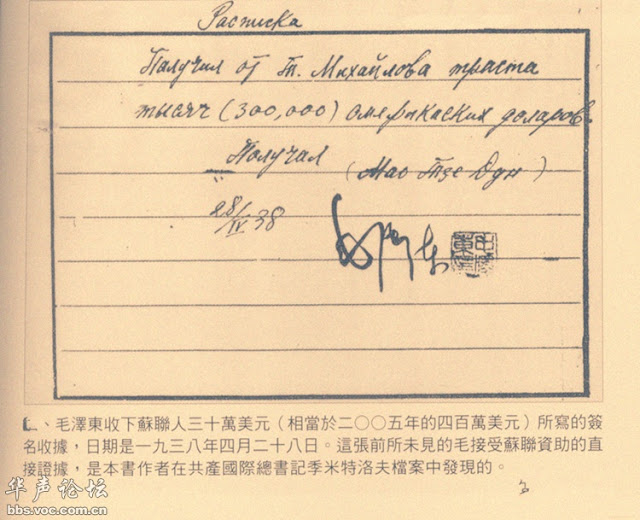 Расписка
Получил от т. Михайлова триста
тысяч (300,000) американских доларов.
Получил (Мао Тзе Дун)
28/IV 38
毛澤東
、毛澤東收下蘇聯人三十萬美元（相當於二〇〇五年的四百萬美元）所寫的簽
名收據，日期是一九三八年四月二十八日。這張前所未見的毛接受蘇聯資助的直
接證據，是本書作者在共產國際總書記季米特洛夫檔案中發現的。
华声论坛
bbs.voc.com.cn